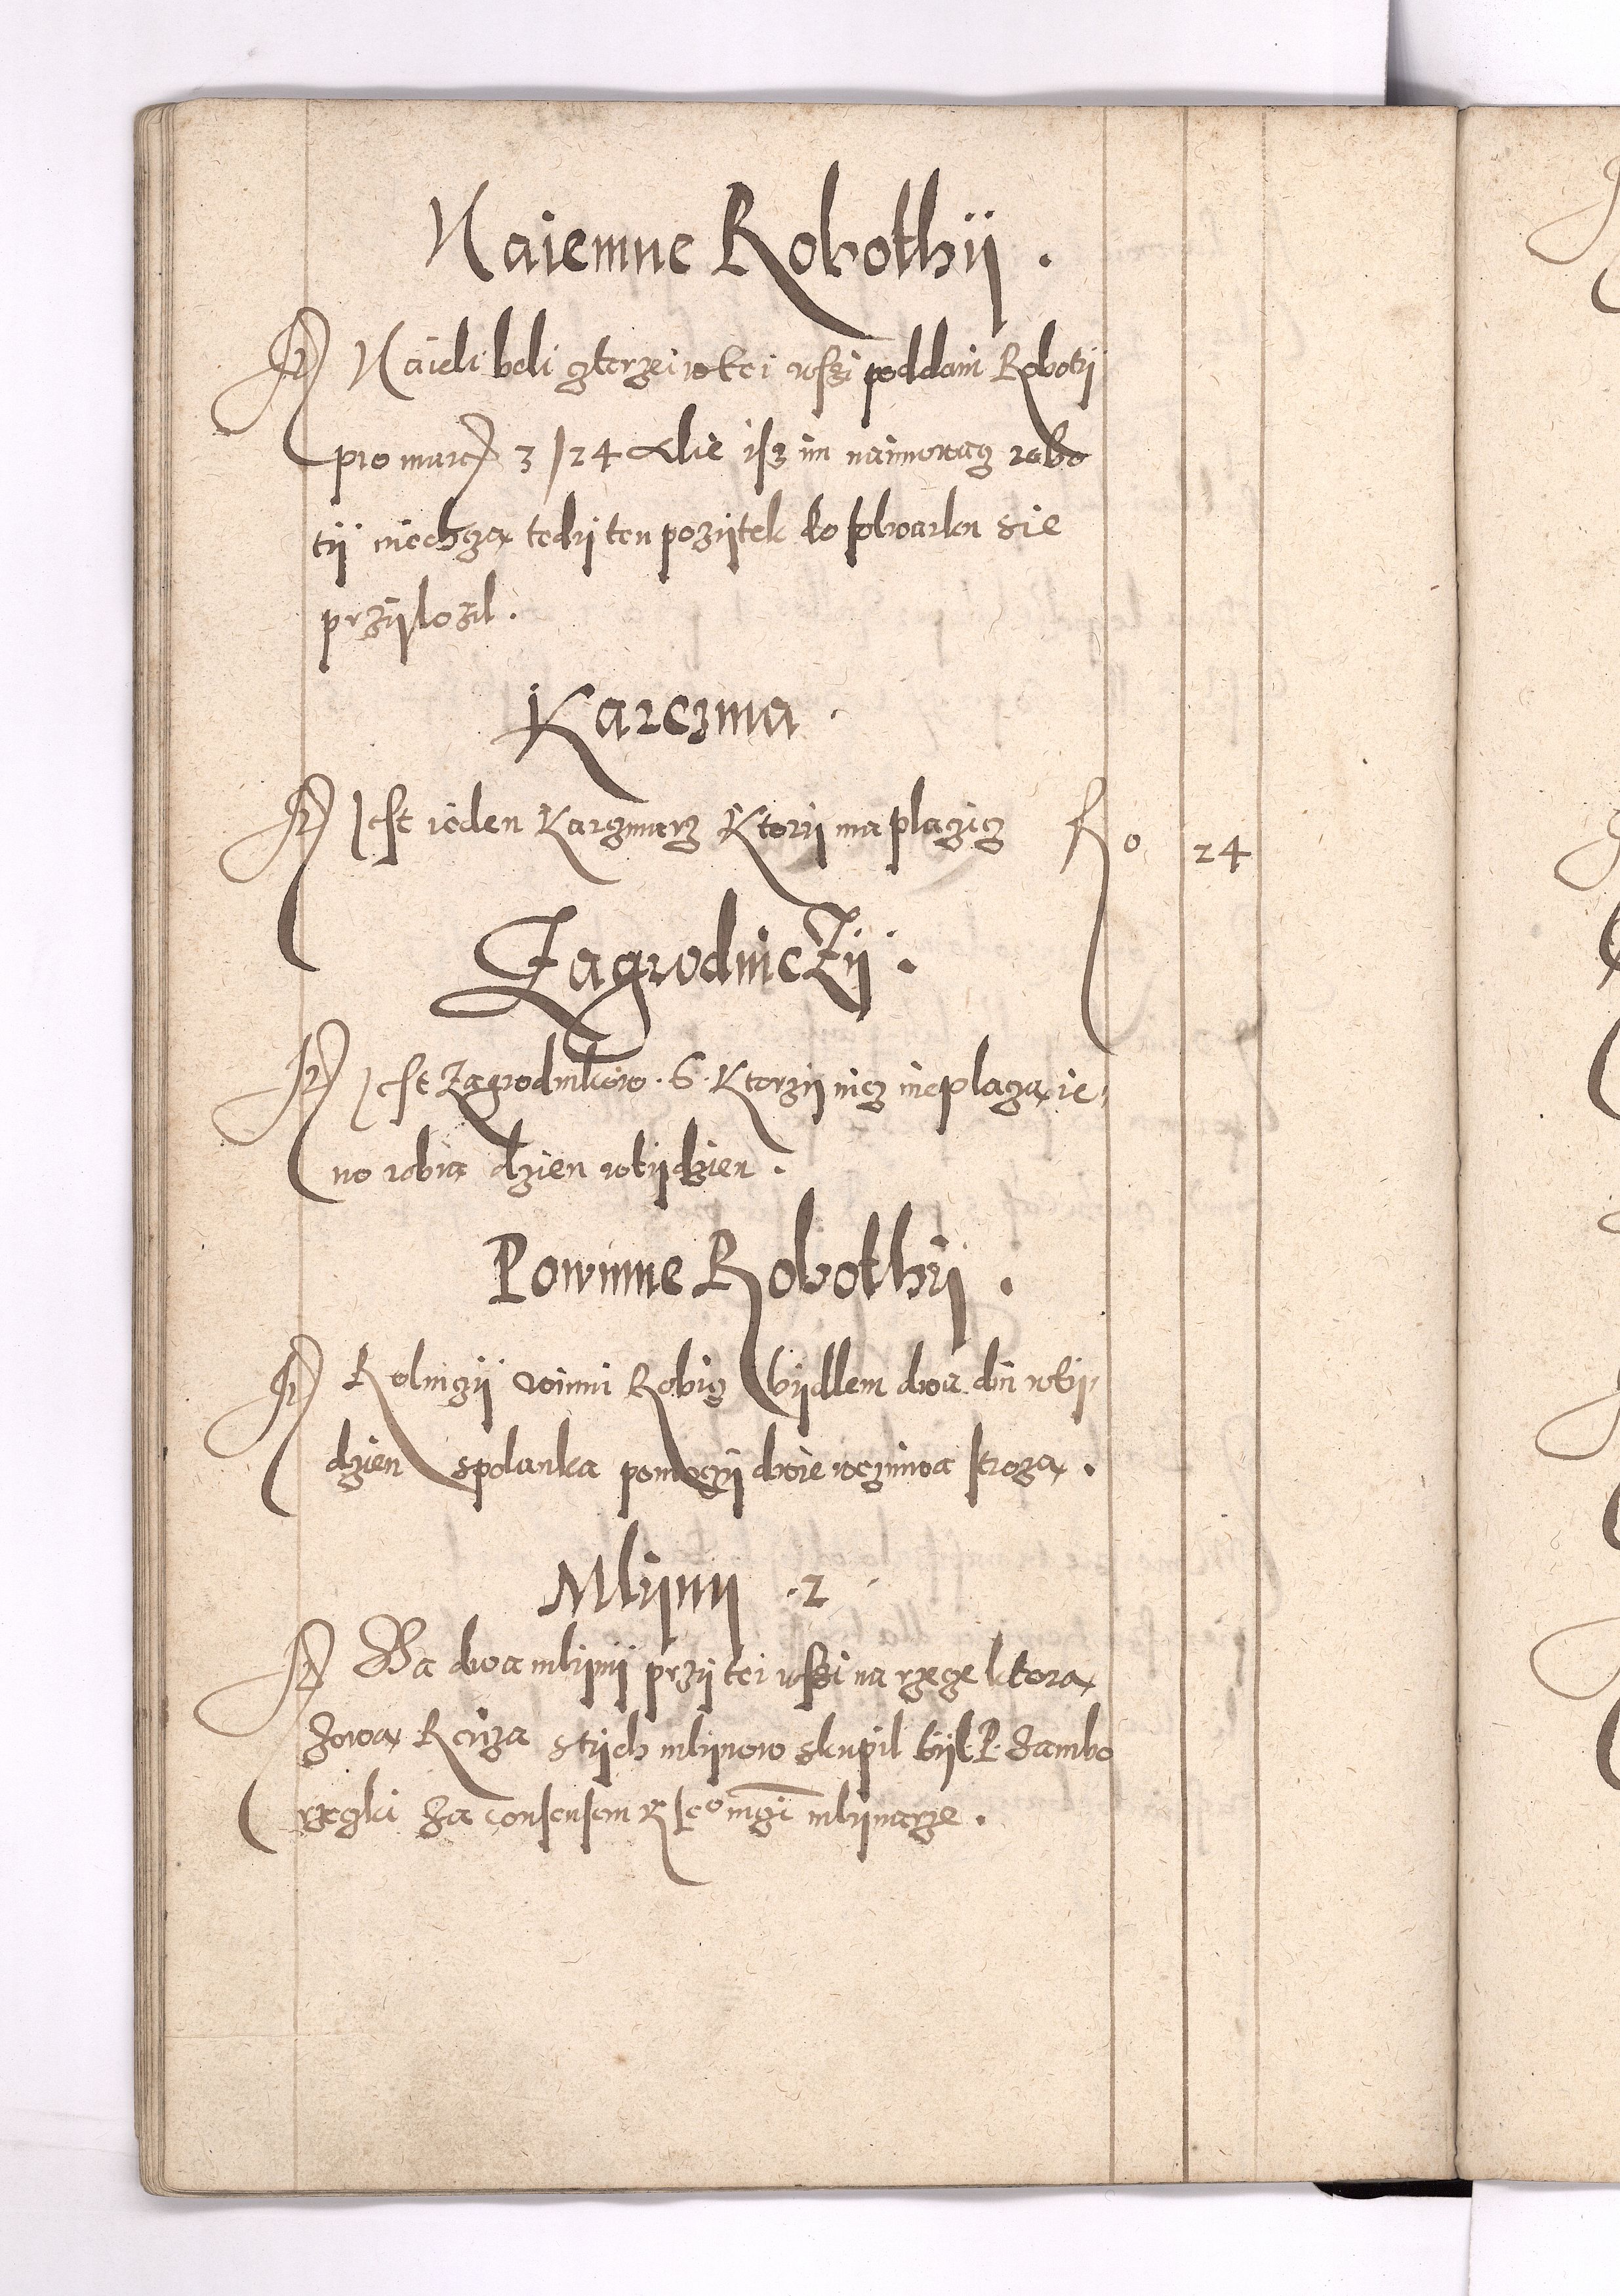 Naiemne Robothÿ .
It Naieli beli czterzei wtei wsszi poddani Robotÿ
pro marc 3 / 24 Alie isz im naimowacz robo
tÿ niechcza tedÿ ten pozÿtek do folwarku sie
przÿlozil .
Karczma .
It Iest ieden Karczmarz Ktorÿ ma placzicz fl 0 24
ZagrodniczÿI .
It Iest Zagrodnikow . 6 . Ktorzÿ nicz nieplacza ie
no robia dzien wtÿdzien .
Powinne Robothÿ .
It Rolniczÿ winni Robicz bÿdlem dwa dni wtÿ
dzien spolanka pomoczÿ dwie oczimva stroza .
Mlÿnÿ . 2 .
It Sa dwa mlÿnÿ przÿ tei wsszi na rzecze ktora
zowa Rcziza stÿch mlÿnow skupil bÿl P. Jambo
rzeczki za consensem R mlÿnarze .